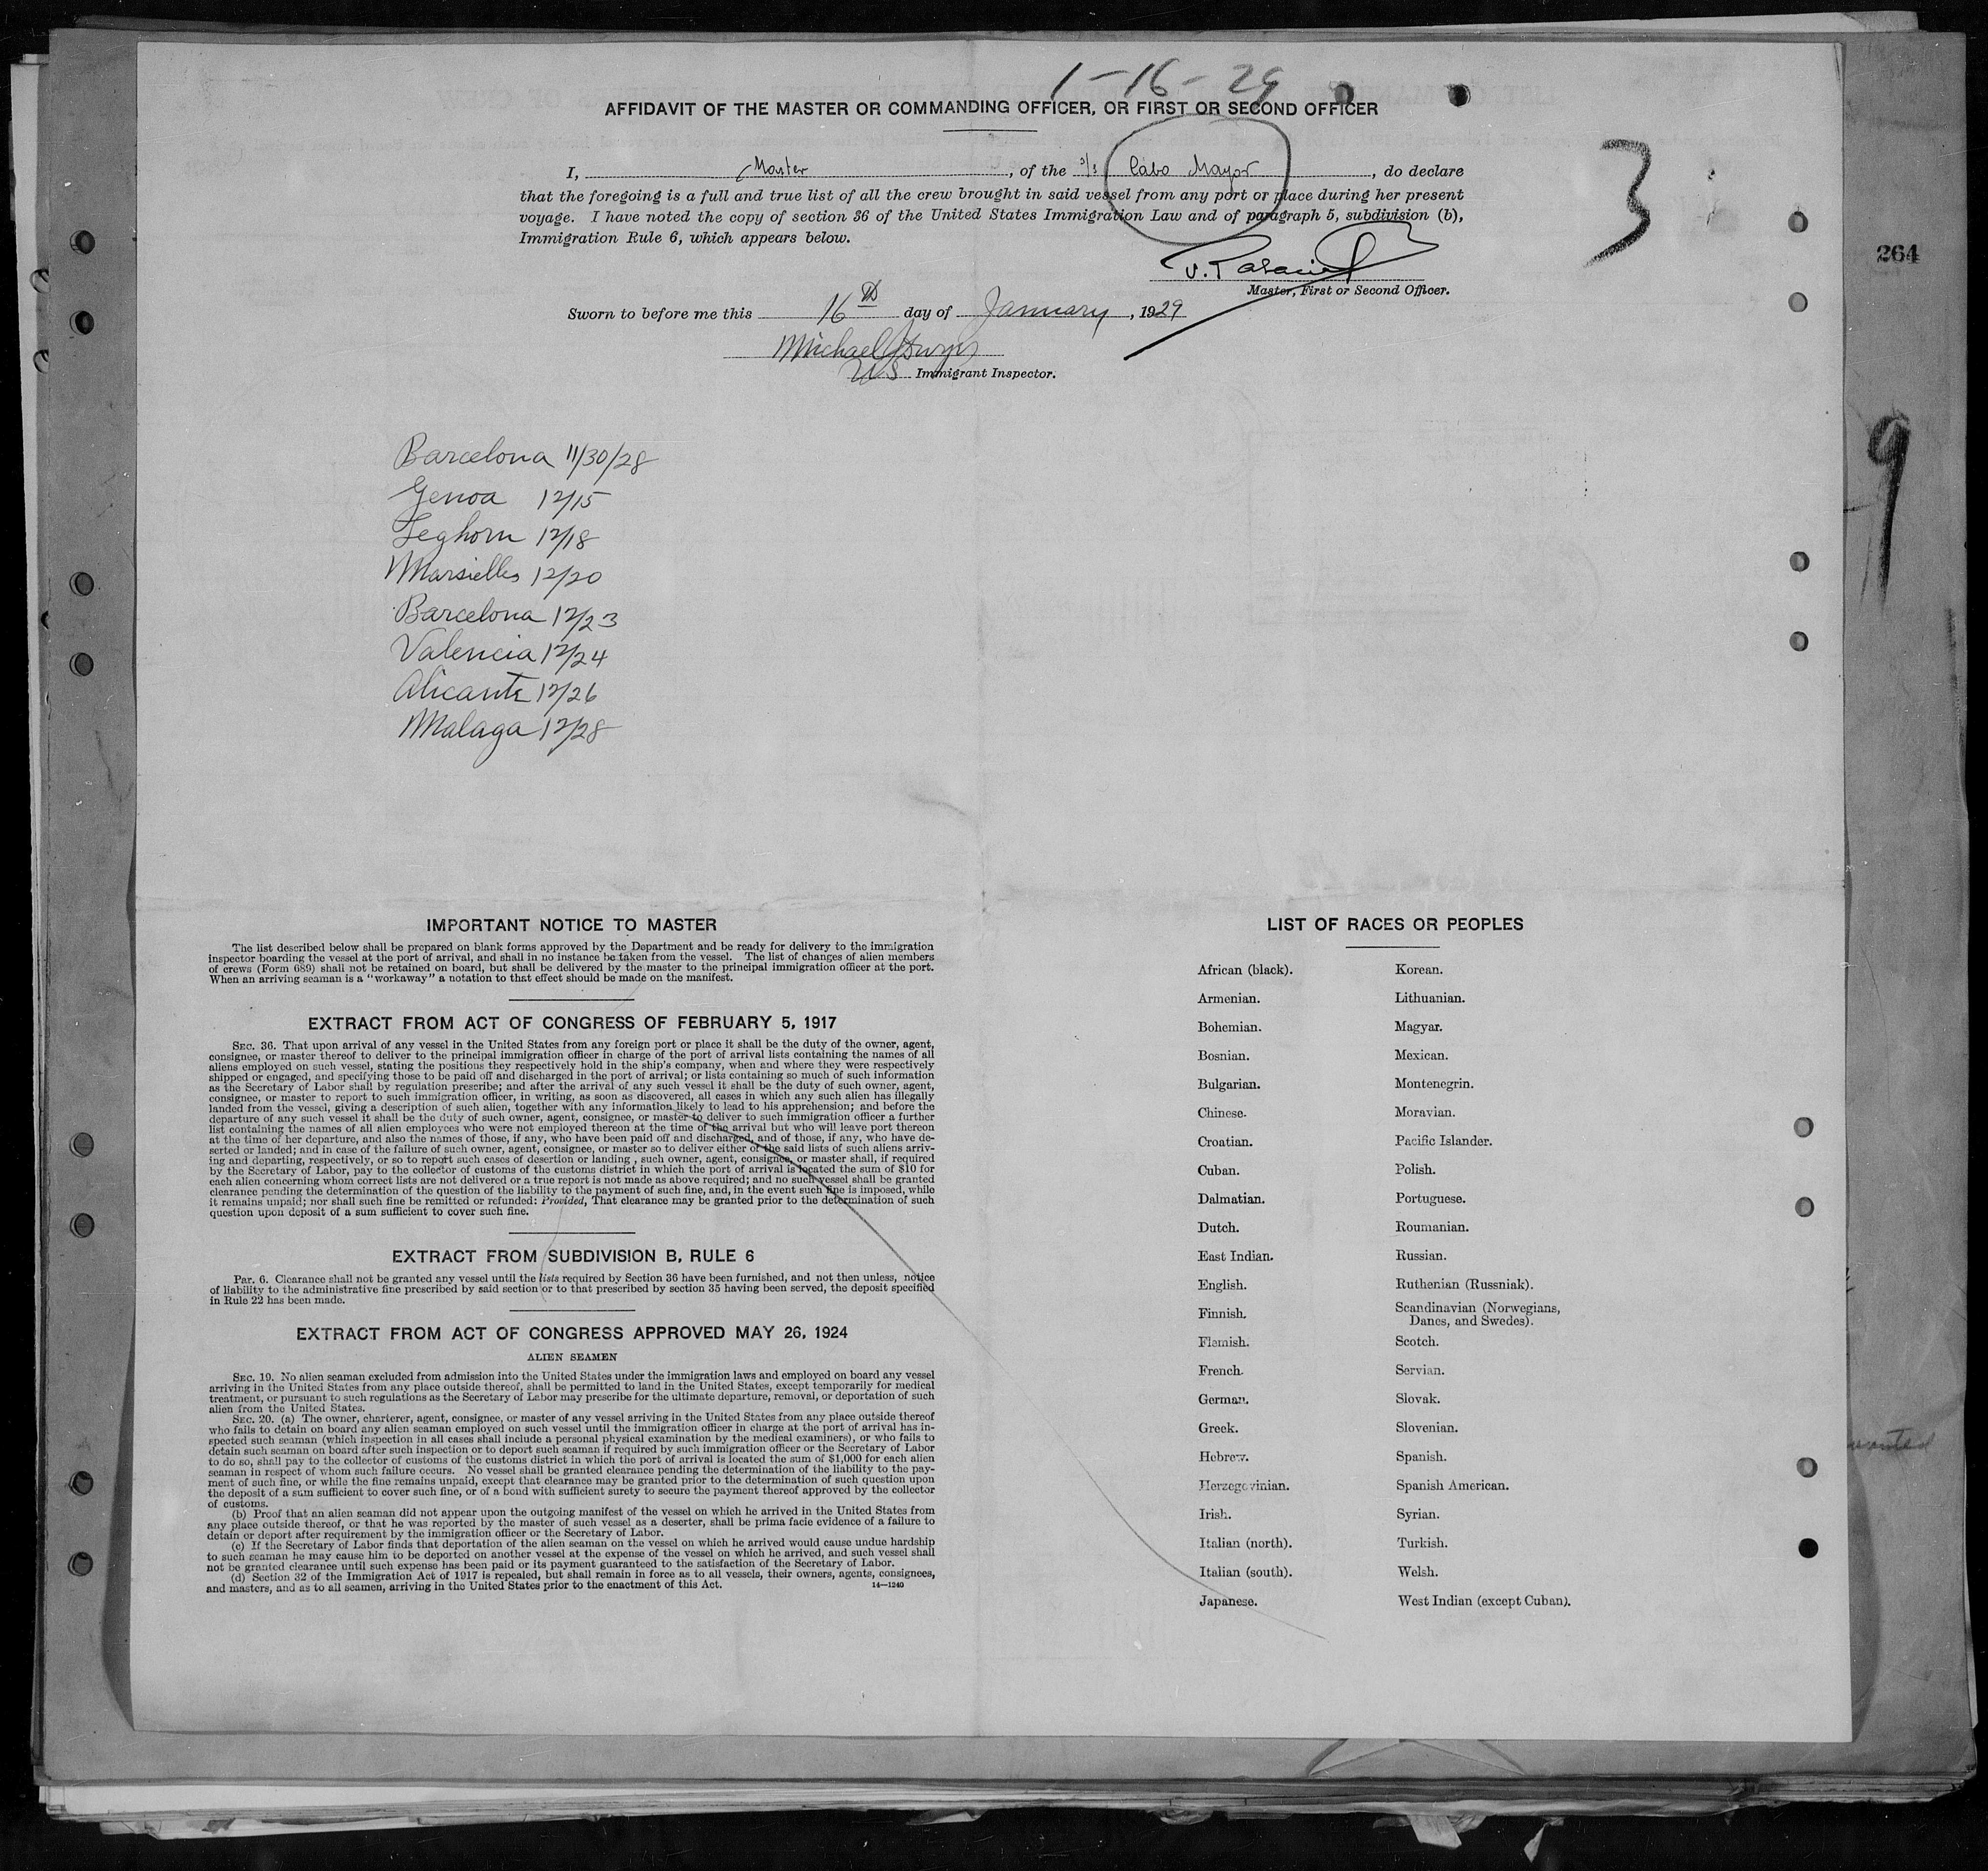 1-16-29
AFFIDAVIT OF THE MASTER OR COMMANDING OFFICER, OR FIRST OR SECOND OFFICER
3
I, Master, of the s/s Cabo Mayor, do declare
that the foregoing is a full and true list of all the crew brought in said vessel from any port or place during her present
voyage. I have noted the copy of section 36 of the United States Immigration Law and of paragraph 5, subdivision (b),
Immigration Rule 6, which appears below.
264
Master, First or Second Officer.
Sworn to before me this 16th day of January, 1929
Michael
US Immigrant Inspector.
9
Barcelona 11/30/28
Genoa 12/15
Leghorn 12/18
Marsielles 12/20
Barcelona 12/23
Valencia 12/24
Alicante 12/26
Malaga 12/28
IMPORTANT NOTICE TO MASTER
The list described below shall be prepared on blank forms approved by the Department and be ready for delivery to the immigration
inspector boarding the vessel at the port of arrival, and shall in no instance be taken from the vessel. The list of changes of alien members
of crews (Form 689) shall not be retained on board, but shall be delivered by the master to the principal immigration officer at the port.
When an arriving seaman is a "workaway" a notation to that effect should be made on the manifest.
EXTRACT FROM ACT OF CONGRESS OF FEBRUARY 5, 1917
SEC. 36. That upon arrival of any vessel in the United States from any foreign port or place it shall be the duty of the owner, agent,
consignee, or master thereof to deliver to the principal immigration officer in charge of the port of arrival lists containing the names of all
aliens employed on such vessel, stating the positions they respectively hold in the ship's company, when and where they were respectively
shipped or engaged, and specifying those to be paid off and discharged in the port of arrival; or lists containing so much of such information
as the Secretary of Labor shall by regulation prescribe; and after the arrival of any such vessel it shall be the duty of such owner, agent,
consignee, or master to report to such immigration officer, in writing, as soon as discovered, all cases in which any such alien has illegally
landed from the vessel, giving a description of such alien, together with any information likely to lead to his apprehension; and before the
departure of any such vessel it shall be the duty of such owner, agent, consignee, or master to deliver to such immigration officer a further
list containing the names of all alien employees who were not employed thereon at the time of the arrival but who will leave port thereon
at the time of her departure, and also the names of those, if any, who have been paid off and discharged, and of those, if any, who have de-
serted or landed; and in case of the failure of such owner, agent, consignee, or master so to deliver either of the said lists of such aliens arriv-
ing and departing, respectively, or so to report such cases of desertion or landing , such owner, agent, consignee, or master shall, if required
by the Secretary of Labor, pay to the collector of customs of the customs district in which the port of arrival is located the sum of $10 for
each alien concerning whom correct lists are not delivered or a true report is not made as above required; and no such vessel shall be granted
clearance pending the determination of the question of the liability to the payment of such fine, and, in the event such fine is imposed, while
it remains unpaid; nor shall such fine be remitted or refunded: Provided, That clearance may be granted prior to the determination of such
question upon deposit of a sum sufficient to cover such fine.
EXTRACT FROM SUBDIVISION B, RULE 6
Par. 6. Clearance shall not be granted any vessel until the lists required by Section 36 have been furnished, and not then unless, notice
of liability to the administrative fine prescribed by said section or to that prescribed by section 35 having been served, the deposit specified
in Rule 22 has been made.
EXTRACT FROM ACT OF CONGRESS APPROVED MAY 26, 1924
ALIEN SEAMEN
SEC. 19. No alien seaman excluded from admission into the United States under the immigration laws and employed on board any vessel
arriving in the United States from any place outside thereof, shall be permitted to land in the United States, except temporarily for medical
treatment, or pursuant to such regulations as the Secretary of Labor may prescribe for the ultimate departure, removal, or deportation of such
alien from the United States.
SEC. 20. (a) The owner, charterer, agent, consignee, or master of any vessel arriving in the United States from any place outside thereof
who fails to detain on board any alien seaman employed on such vessel until the immigration officer in charge at the port of arrival has in-
spected such seaman (which inspection in all cases shall include a personal physical examination by the medical examiners), or who fails to
detain such seaman on board after such inspection or to deport such seaman if required by such immigration officer or the Secretary of Labor
to do so, shall pay to the collector of customs of the customs district in which the port of arrival is located the sum of $1,000 for each alien
seaman in respect of whom such failure occurs. No vessel shall be granted clearance pending the determination of the liability to the pay-
ment of such fine, or while the fine remains unpaid, except that clearance may be granted prior to the determination of such question upon
the deposit of a sum sufficient to cover such fine, or of a bond with sufficient surety to secure the payment thereof approved by the collector
of customs.
(b) Proof that an alien seaman did not appear upon the outgoing manifest of the vessel on which he arrived in the United States from
any place outside thereof, or that he was reported by the master of such vessel as a deserter, shall be prima facie evidence of a failure to
detain or deport after requirement by the immigration officer or the Secretary of Labor.
(c) If the Secretary of Labor finds that deportation of the alien seaman on the vessel on which he arrived would cause undue hardship
to such seaman he may cause him to be deported on another vessel at the expense of the vessel on which he arrived, and such vessel shall
not be granted clearance until such expense has been paid or its payment guaranteed to the satisfaction of the Secretary of Labor.
(d) Section 32 of the Immigration Act of 1917 is repealed, but shall remain in force as to all vessels, their owners, agents, consignees,
and masters, and as to all seamen, arriving in the United States prior to the enactment of this Act.
14—1240
LIST OF RACES OR PEOPLES
African (black).
Armenian.
Bohemian.
Bosnian.
Bulgarian.
Chinese.
Croatian.
Cuban.
Dalmatian.
Dutch.
East Indian.
English.
Finnish.
Flemish.
French.
German.
Greek.
Hebrew.
Herzegovinian.
Irish.
Italian (north).
Italian (south).
Japanese.
Korean.
Lithuanian.
Magyar.
Mexican.
Montenegrin.
Moravian.
Pacific Islander.
Polish.
Portuguese.
Roumanian.
Russian.
Ruthenian (Russniak).
Scandinavian (Norwegians,
Danes, and Swedes).
Scotch.
Servian.
Slovak.
Slovenian.
Spanish.
Spanish American.
Syrian.
Turkish.
Welsh.
West Indian (except Cuban).